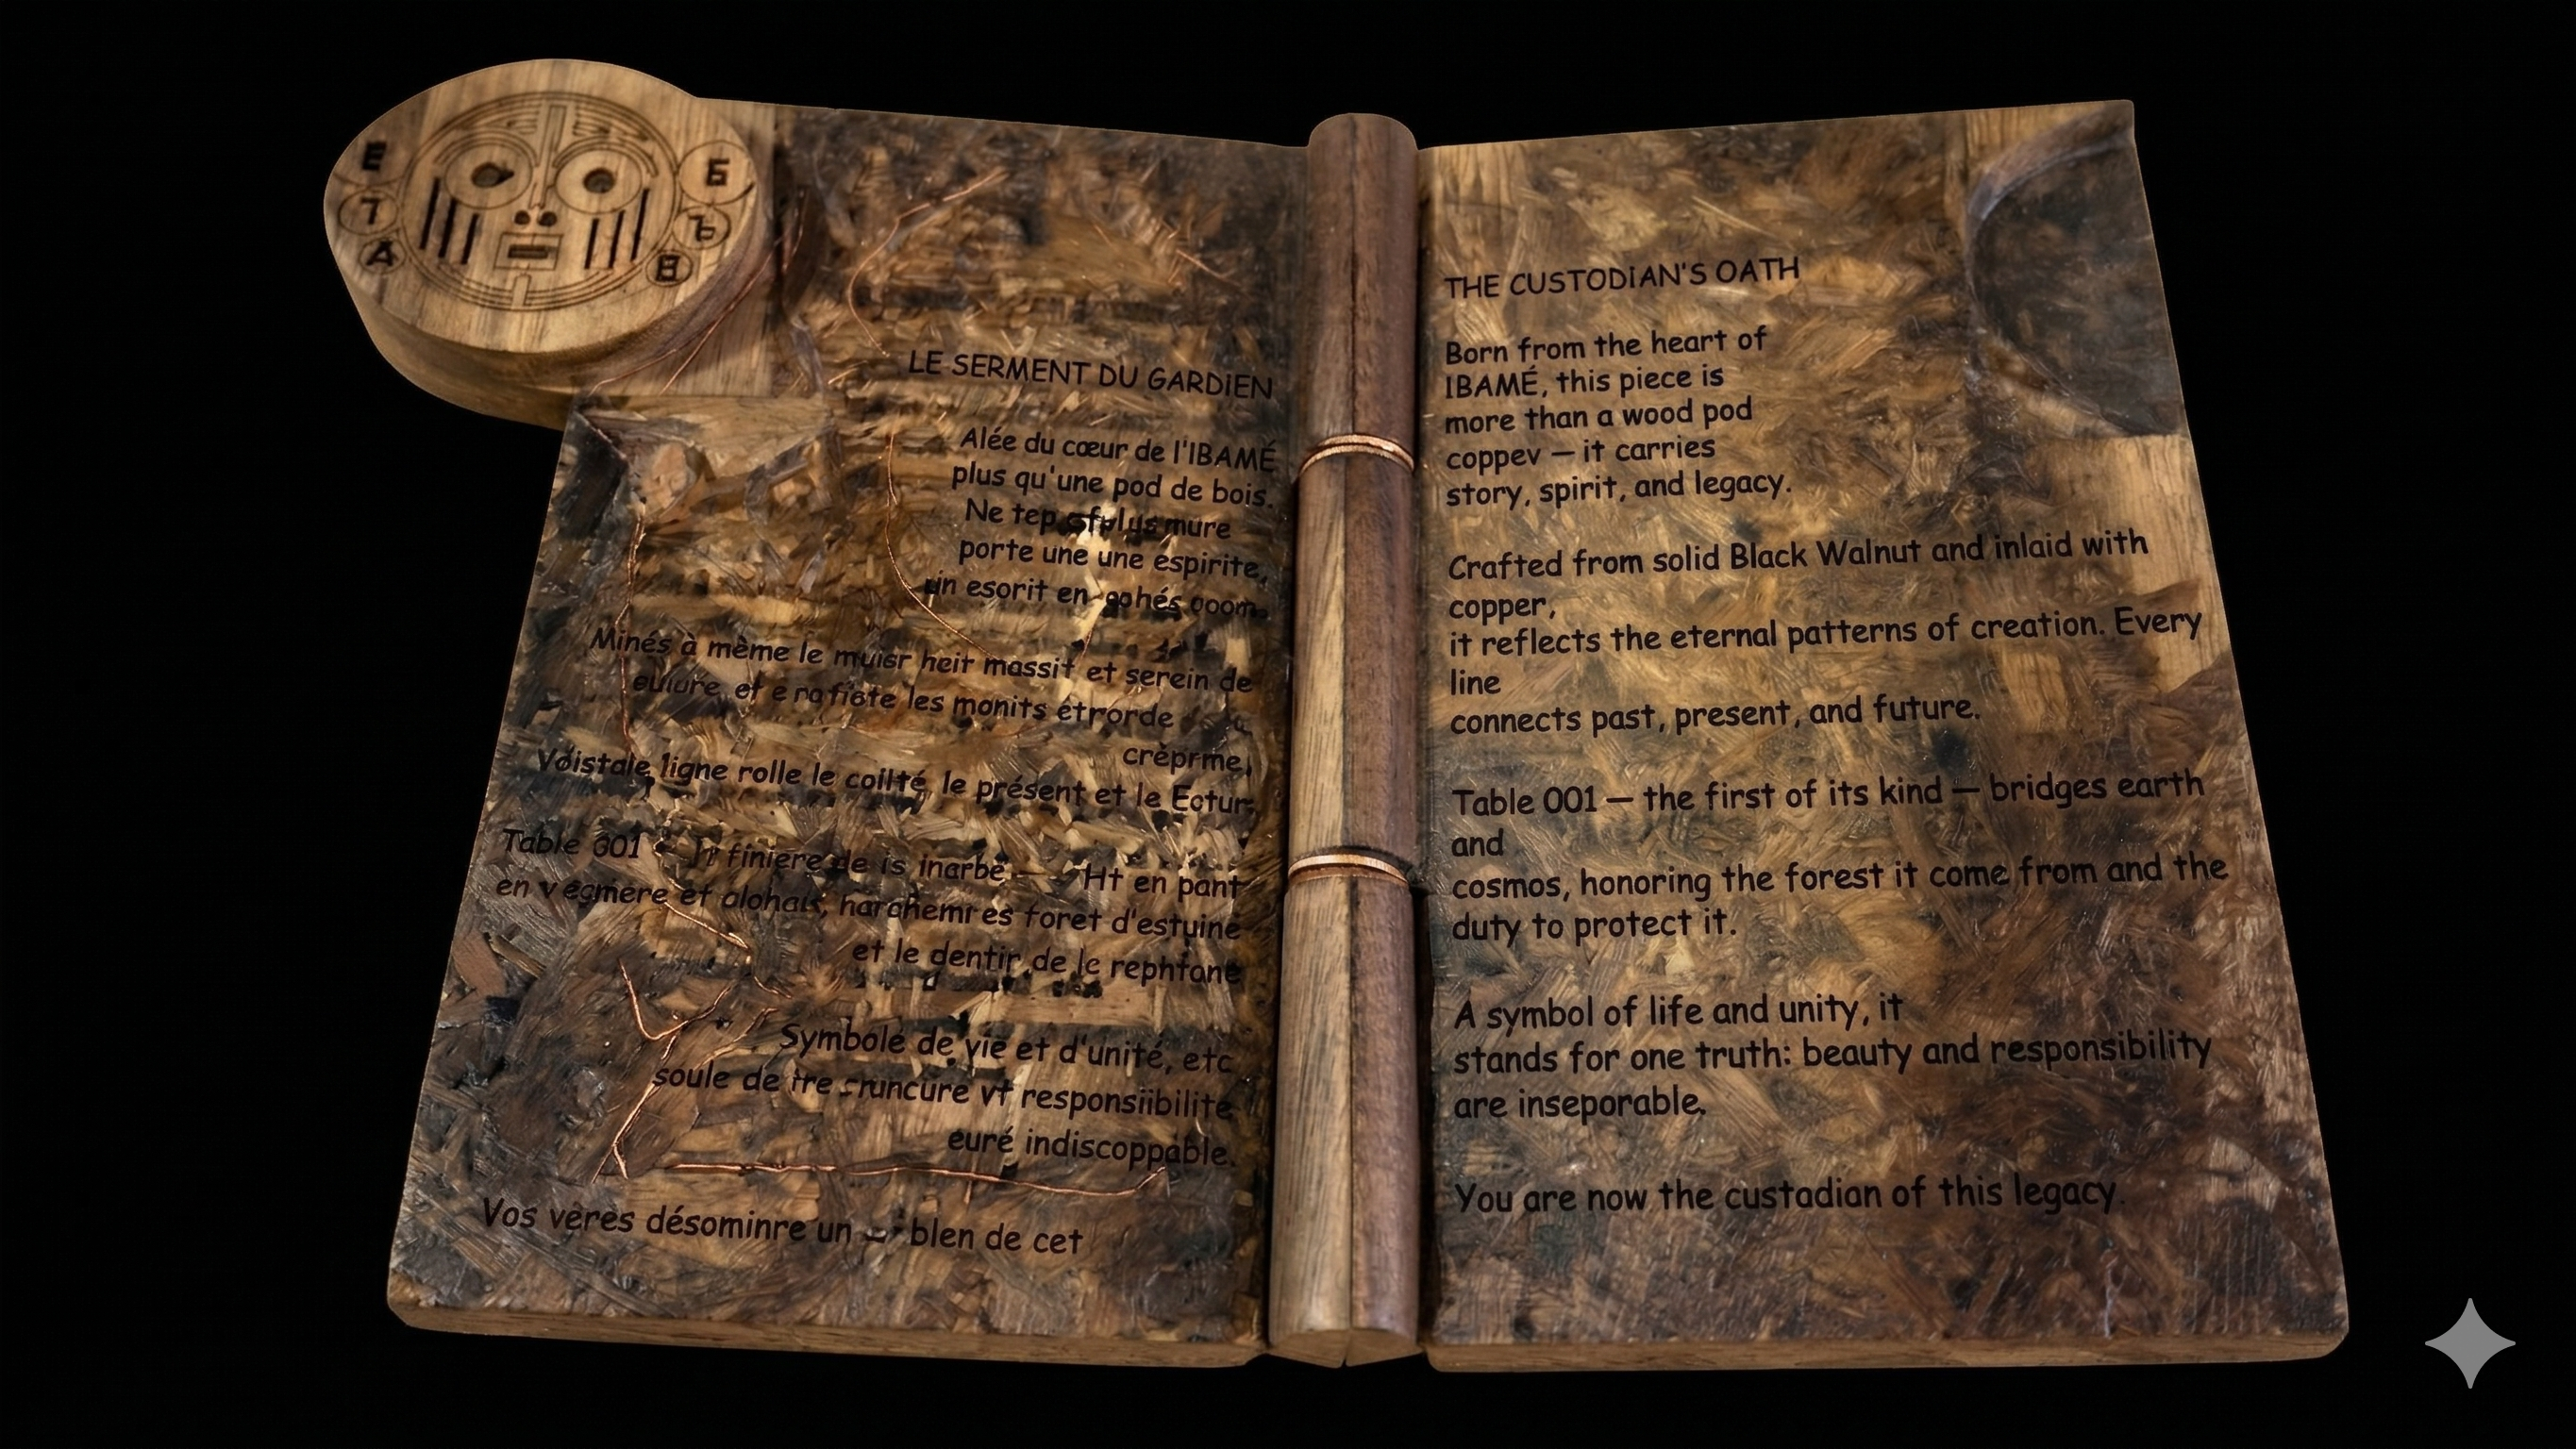 E
7
A
Б
Ъ
B
LE SERMENT DU GARDIEN
Alée du cœur de l'IBAMÉ
plus qu'une pod de bois.
Ne tep mure
porte une une espirite,
un esorit en
Minés à mème le muisr heit massit et serein de
et e les monits étrorde
crèprme,
Voistale ligne rolle le coilté, le présent et le Ectur.
Table 001 finiere de is inarbe — Ht en pant
en vegmère et alohais, foret d'estuine
et le dentir de le rephtane
Symbole de vie et d'unité, etc
soule de vt responsiibilite
euré indiscoppable.
Vos vères désominre un blen de cet
THE CUSTODIAN'S OATH
Born from the heart of
IBAMÉ, this piece is
more than a wood pod
coppev — it carries
story, spirit, and legacy.
Crafted from solid Black Walnut and inlaid with
copper,
it reflects the eternal patterns of creation. Every
line
connects past, present, and future.
Table 001 — the first of its kind — bridges earth
and
cosmos, honoring the forest it come from and the
duty to protect it.
A symbol of life and unity, it
stands for one truth: beauty and responsibility
are inseporable.
You are now the custadian of this legacy.